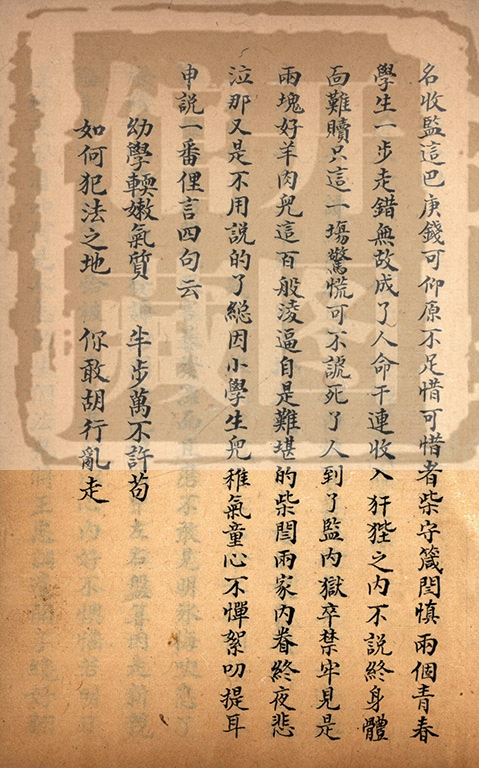 名收監這巴庚錢可仰原不足惜可惜者柴守箴閆慎兩個青春
學生一步走錯無故成了人命干連收入犴狴之内不說終身體
面難贖只這一塲驚慌可不諕死了人到了監内獄卒禁牢見是
兩塊好羊肉兒這百般淩逼自是難堪的柴閆兩家内眷終夜悲
泣那又是不用説的了総因小學生兒稚氣童心不憚絮叨提耳
申説一番俚言四句云
幼學輭嫩氣質 半步萬不許苟
如何犯法之地 你敢胡行亂走